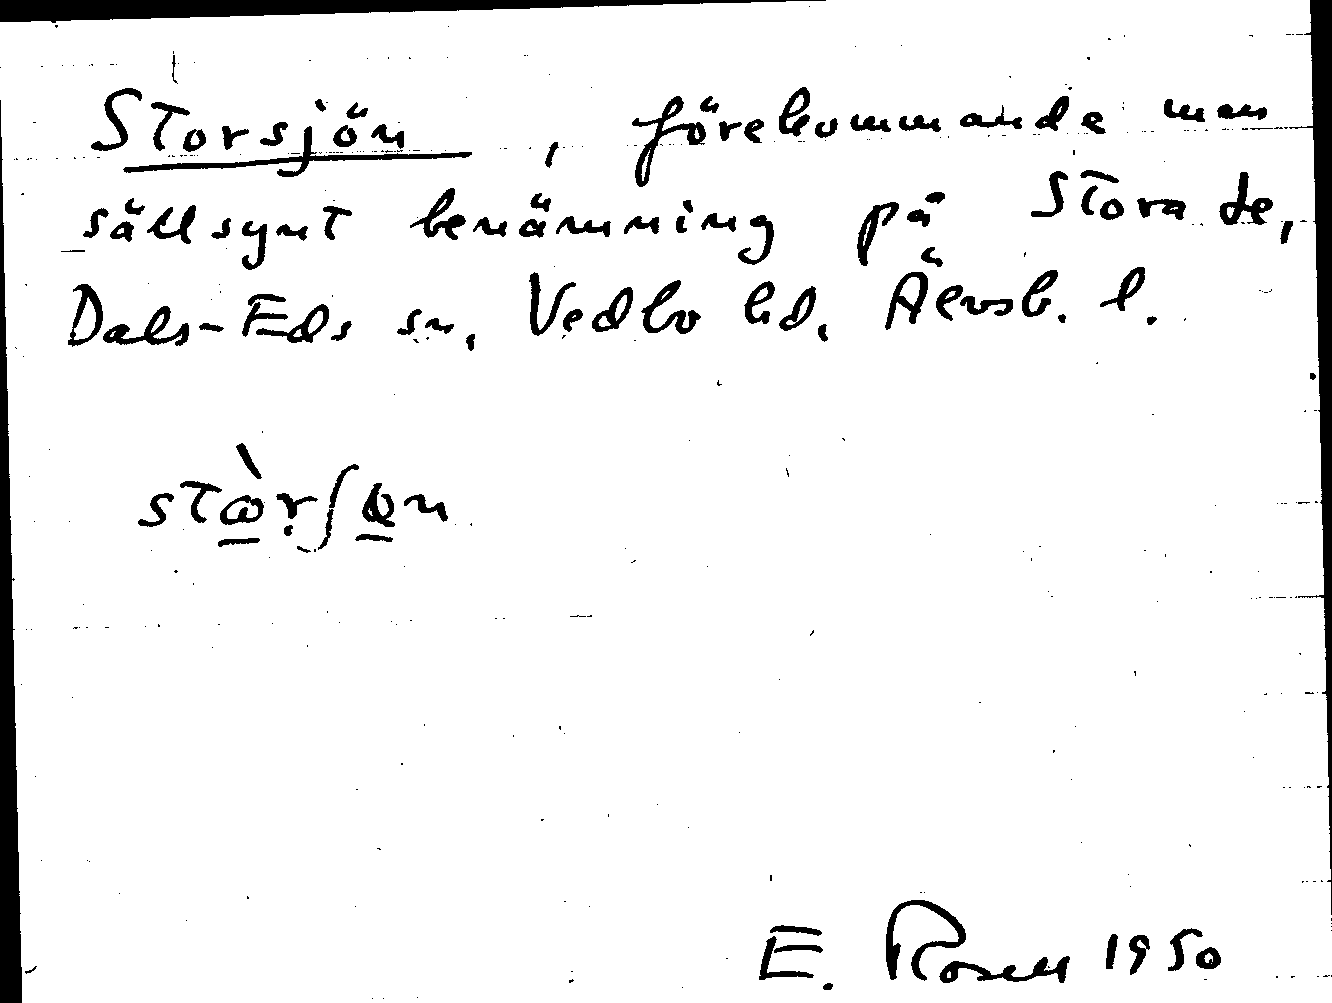 Storsjön, förekommande men
sällsynt benämning på Stora Le,
Dals-Eds sn, Vedbo hd, Älvsb. l.
stɷ̀rʃɵn
E. Rosell 1950